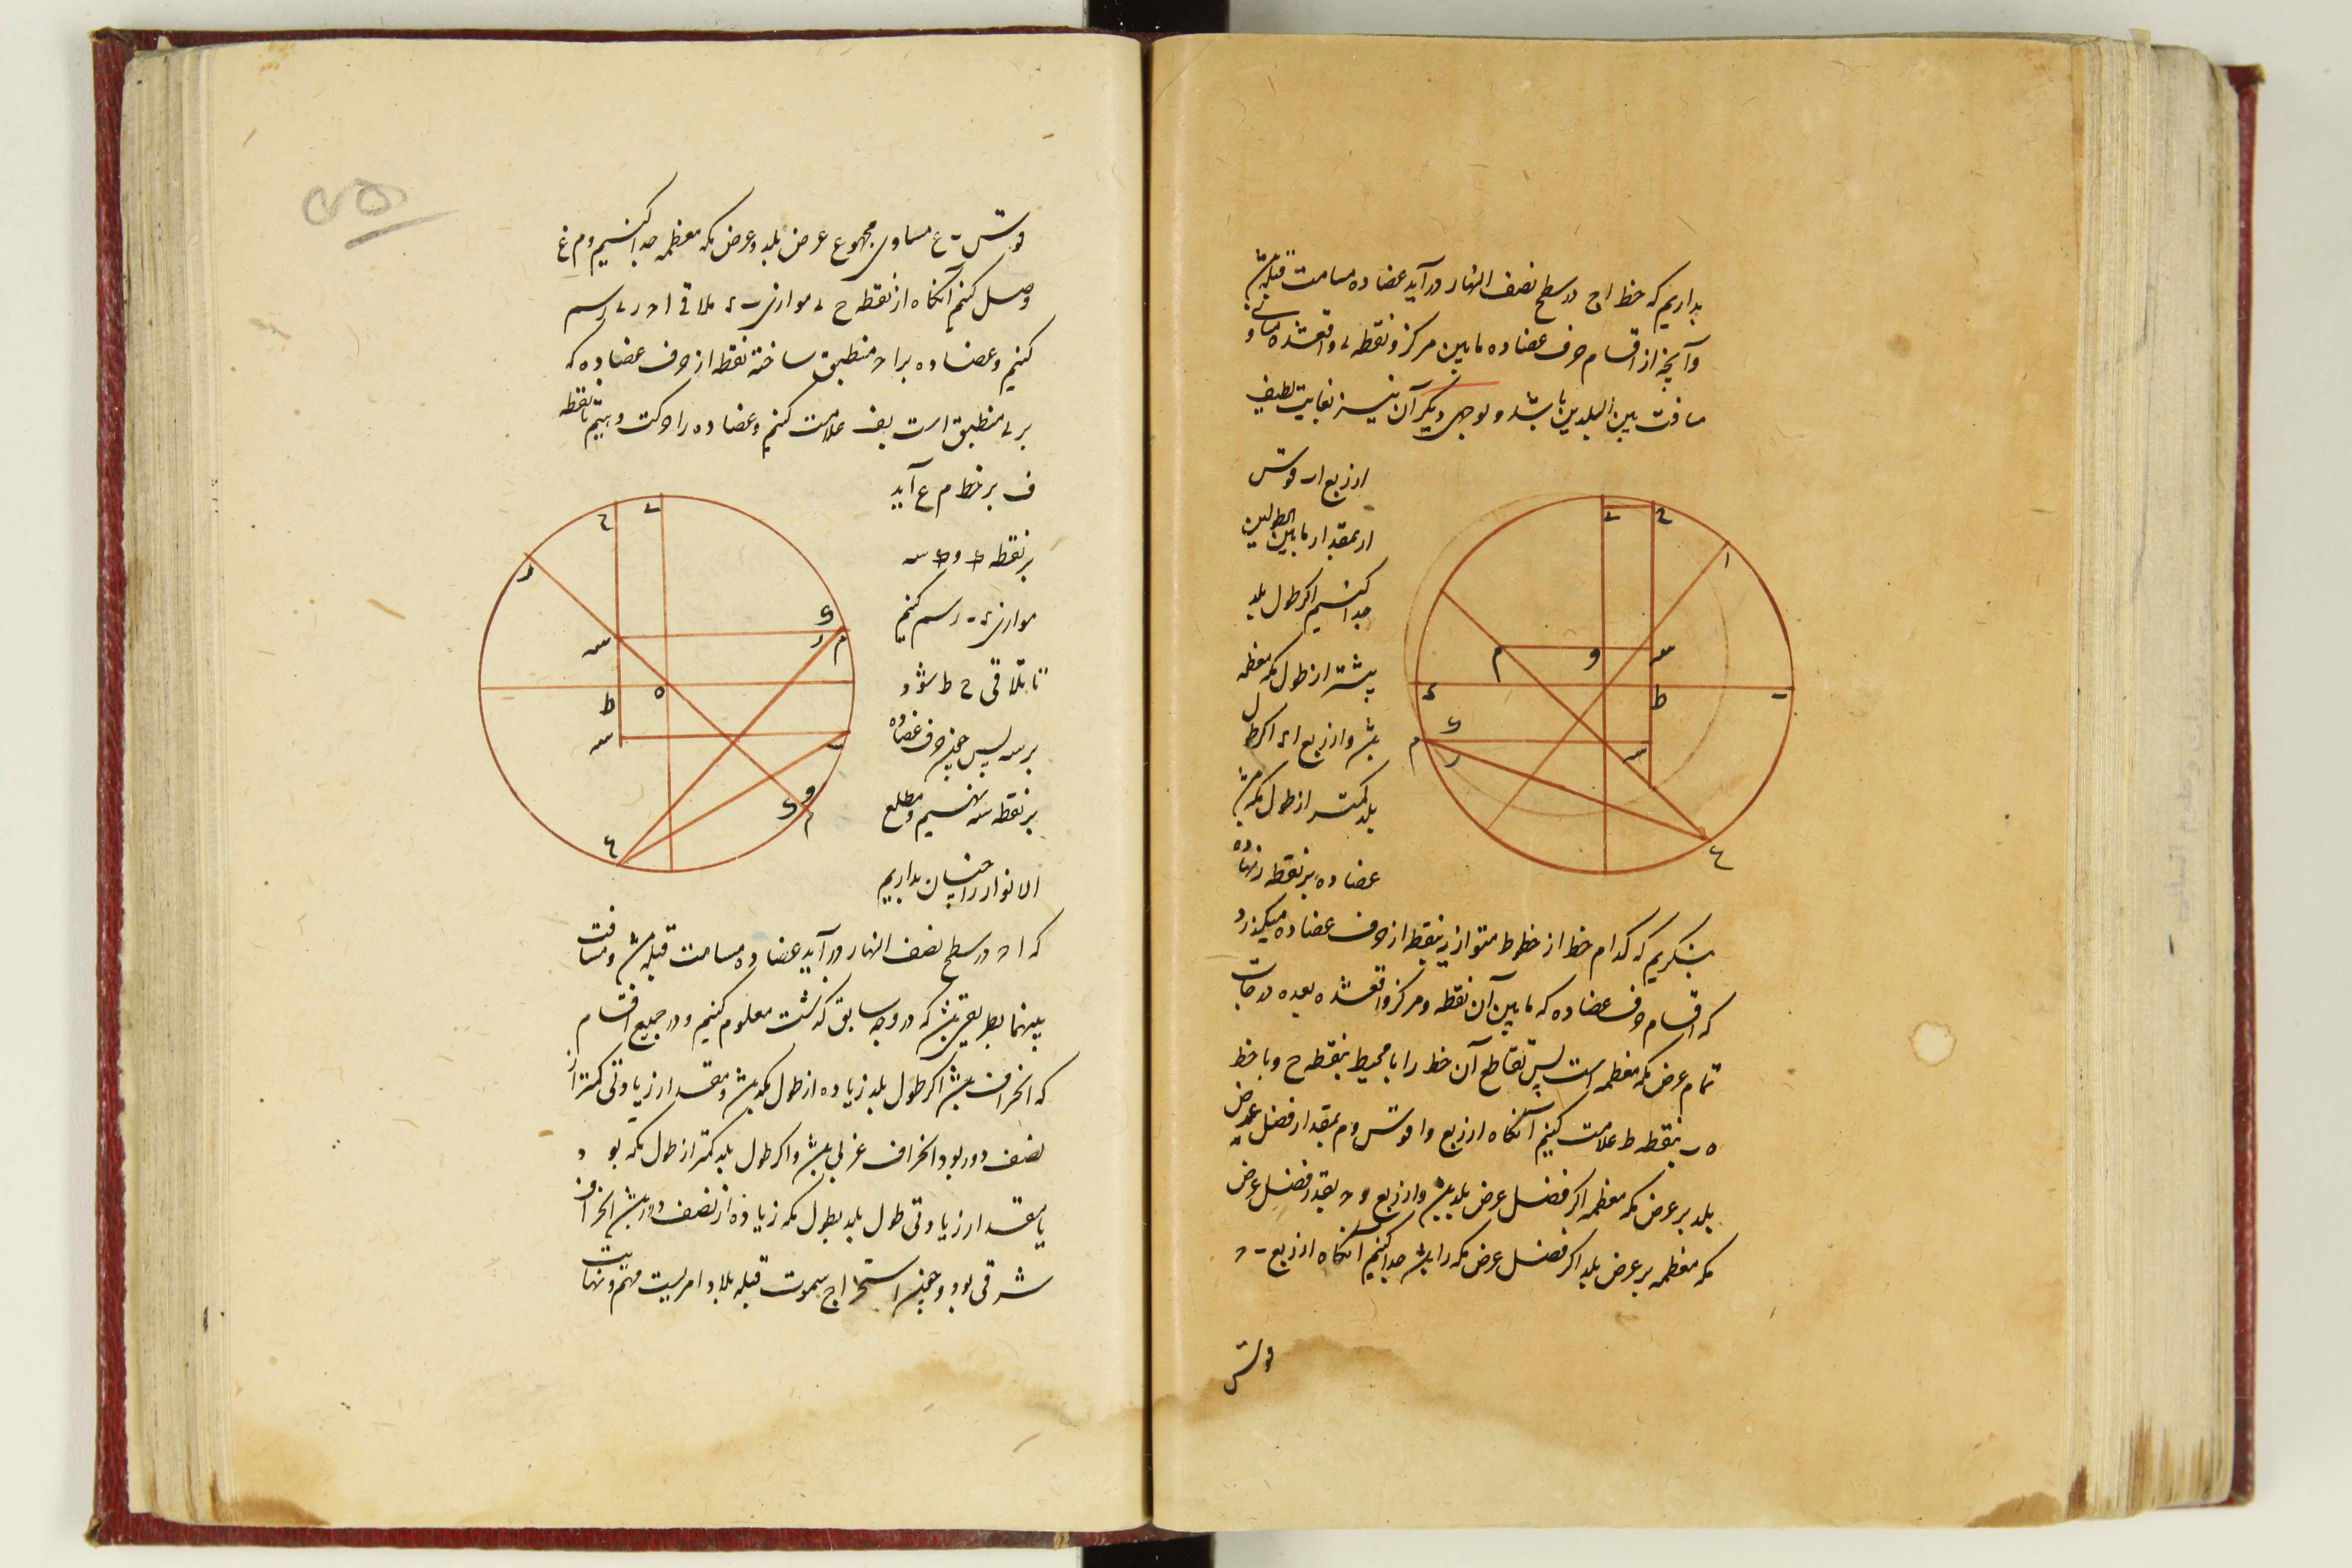 بداریم که خط اح در سطح نصف النهار در آید عضاده مسامت قبله باشد
وآنچه از اقسام حرف عضاده مابین مرکز و نقطه ے واقعشده
مسافت بین البلدین باشد و بوجهی دیگر آن نیز بغایت لطیف
از ربع اب قوس
ار بمقدار مابین الطولین
جدا کنیم اگر طول بلد
بیشتر از طول مکه معظمه
باشد و از ربع اء اگر طول
بلد کمتر از طول مکه باشد
عضاده بر نقطه ر نهاده
بنگریم که کدام خط از خطوط متوازیه بنقطه از حرف عضاده میگذرد
که اقسام حرف عضاده که مابین آن نقطه و مرکز واقعشده بعده درجات
تمام عرض مکه معظمه است پس تقاطع آن خط را با محیط بنقطه ح و با خط
ه ب بنقطه ط علامت کنیم آنگاه از ربع وا قوس وم بمقدار فضل عرض
بلد بر عرض مکه معظمه اگر فضل عرض بلد باشد و از ربع وء بقدر فضل عرض
مکه معظمه بر عرض بلد اگر فضل عرض مکه را باشد جدا کنیم آنگاه از ربع ب ء
قوس
ے
ح
ا
م
و
س
ط
ب
ء
ی
م
ر
س
ع
قوس ب ع مساوی مجموع عرض بلد و عرض مکه معظمه جدا کنیم و م ع
وصل کنیم آنگاه از نقطه ح ے موازی ب ء ملاقی اء در ے رسم
کنیم و عضاده برا ء منطبق ساخته نقطه از حرف عضاده که
بر ے منطبق است بف علامت کنیم و عضاده را حرکت دهیم تا نقطه
ف بر خط م ع آید
بر نقطه
موازی ء ب رسم کنیم
تا تلاقی ح ط شود
بر سه پس چون حرف عضاده
بر نقطه سه نهیم و مطلع
الانوار را چنان بداریم
که اء در سطح نصف النهار در آید عضاده مسامت قبله باشد و مسافت
بینهما بطریقی که در وجه سابق گذشت معلوم کنیم و در جمیع اقسام
که انحراف باشد اگر طول بلد زیاده از طول مکه باشد و مقدار زیادتی کمتر از
نصف دور بود انحراف غربی باشد و اگر طول بلد کمتر از طول مکه بود
یا مقدار زیادتی طول بلد بطول مکه زیاده از نصف دور باشد انحراف
شرقی بود و چون استخراج سموت قبله بلاد امریست مهم و نهایت
ح
ے
ر
ی
ر
م
س
ط
ه
س
ب
و
ی
م
ع